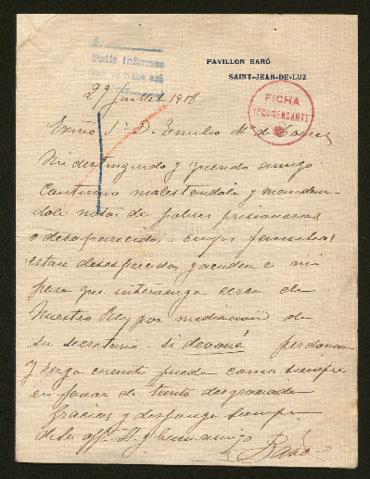 PAVILLON BARÓ
SAINT-JEAN-DE-LUZ
Pedir informes
FICHA
29 juillet 1918
Exmo Sr D. Emilio Mª de Torres
Mi distinguido y querido amigo
Continuo molestandole y mandan-
dole notas de pobres prisioneros
o desaparecidos cuyas familias
estan desesperadas y acuden a mi
para que intervenga cerca de
Nuestro Rey por mediacion de
su secretario
y haga cuanto pueda como siempre
en favor de tanto desgraciado
Gracias y disponga siempre
de su aff. y buen amigo
Baró